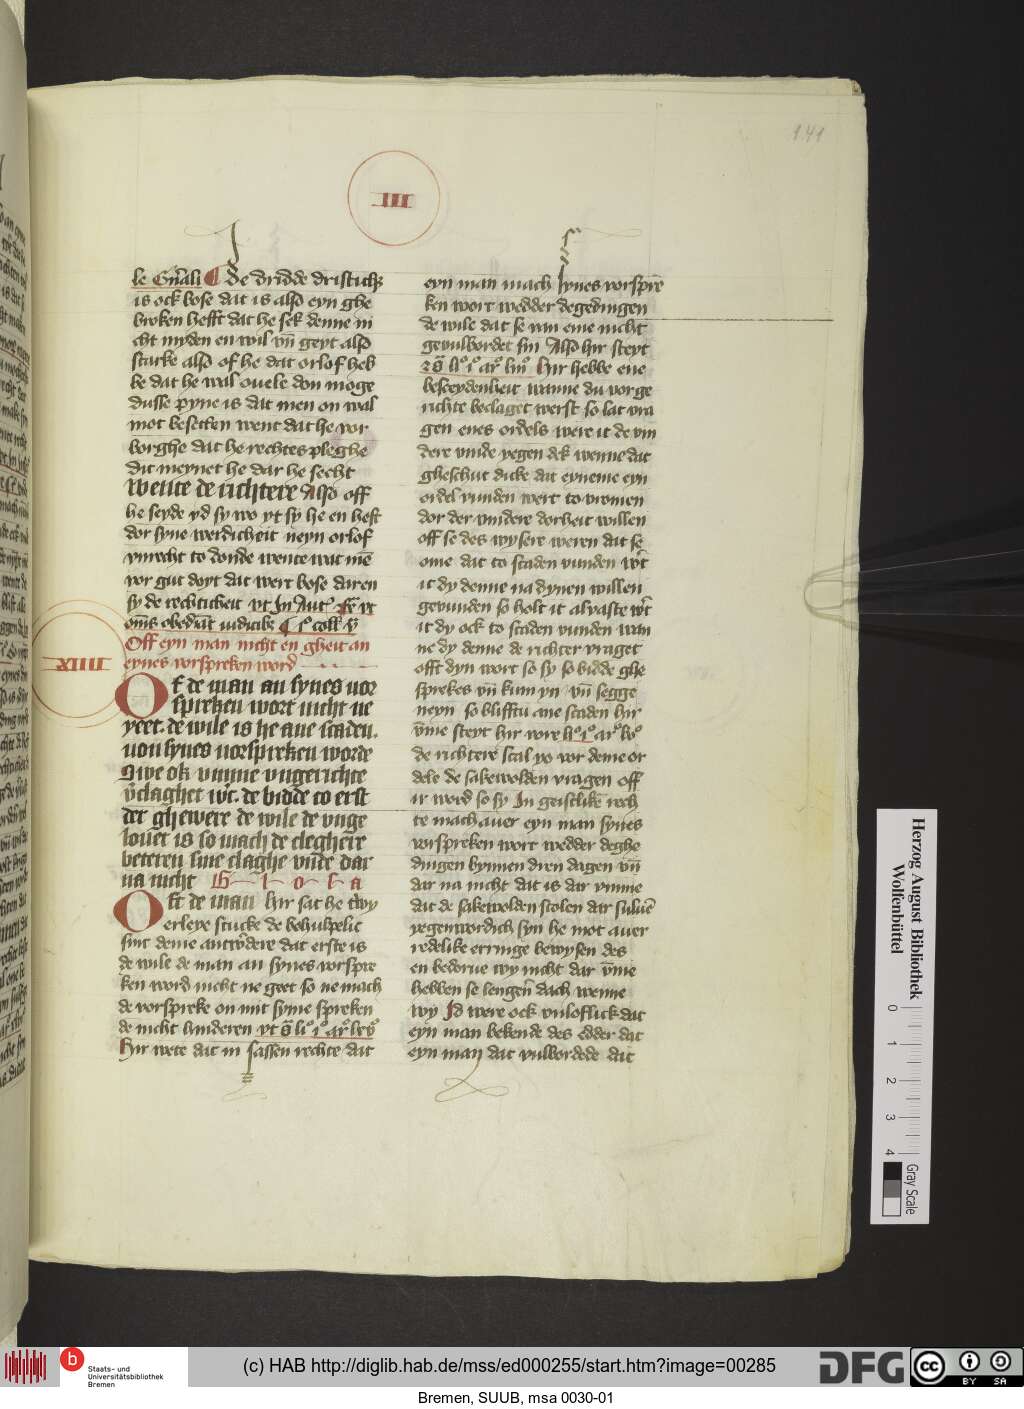 141
III
le Gn̄ali ¶ De dridde dristicheit
is ock bose dat is also eyn ghe
broken hefft dat he sek denne ni
cht myden en wil vn̄ geyt also
starke also of he dat orlof heb
be dat he wal ouele don moge
dusse pyne is dat men on wal
mot besetten went dat he vor
borghe dat he rechtes pleghe
Dit meynet he dar he secht
Wente de richtere Also off
he seyde yd sy wo yt sy he en heft
dor syne werdicheit neyn orlof
vnrecht to donde wente wat mē
vor gut doyt dat wert bose daren
sy de rechticheit vt In Aut'
Off eyn man nicht en gheit an
eynes vorspreken word
XIIII
Of de man an synes vor
spreken wort nicht ne
yeet. de wile is he ane scaden.
von synes vorspreken worde
Swe ok vmme vngerichte
v̄claghet wt̄. de bidde to erst
der ghewere de wile de vnge
louet is so mach de cleghere
beteren sine claghe vnde dar
na nicht Glosa
Oft de man Hir sat he twy
erleye stucke de behulpelic
sint deme antwdere dat erste is
de wile de man an synes vorspre
ken word nicht ne geet so ne mach
de vorspreke on mit syme spreken
de nicht hinderen vt
Hir wete dat in sassen rechte dat
eyn man mach synes vorspre
ken wort wedder degedingen
de wile dat se van eme nicht
gevulbordet sin Also hir steyt
Hir hebbe ene
bescheydenheit wanne du vorge
richte beclaget werst so lat vra
gen enes ordels were it de vin
dere vinde yegen dek wenne dat
gheschut dicke dat eyneme eyn
ordel vunden wert to vromen
dor der vindere dorheit willen
off se des wysere weren dat se
ome dat to scaden vunden wt̄
it dy denne na dynen willen
gevunden so holt it alvaste wt̄
it dy ock to scaden vunden wan
ne dy denne de richter vraget
offt dyn wort so sy so bidde ghe
sprekes vn̄ kum yn vn̄ segge
neyn so bliffstu ane scaden hir
vm̄e steyt hir vore
de richtere scal yo vor deme or
dele de sakewolden vragen off
it word so sy In geistlike rech
te mach auer eyn man synes
vorspreken wort wedder deghe
dingen bynnen dren dagen vn̄
dar na nicht dat is dar vmme
dat de sakewolden scolen dar suluē
yegenwordich syn he mot auer
redelike erringe bewysen des
en bedorue wy nicht dar vm̄e
hebben se lengen dach wenne
wy Id were ock vnloflick dat
eyn man bekende des edder dat
eyn man dat vulbordede dat
Herzog August Bibliothek
Wolfenbüttel
0 1 2 3 4
Gray Scale
b
Staats- und
Universitätsbibliothek
Bremen
(c) HAB http://diglib.hab.de/mss/ed000255/start.htm?image=00285
DFG
cc
BY SA
Bremen, SUUB, msa 0030-01